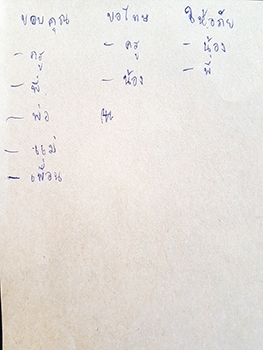 ขอบคุณ ขอโทษ ให้อภัย
- ครู - ครู - น้อง
- พี่ - น้อง - พี่
- พ่อ
- แม่
- เพื่อน